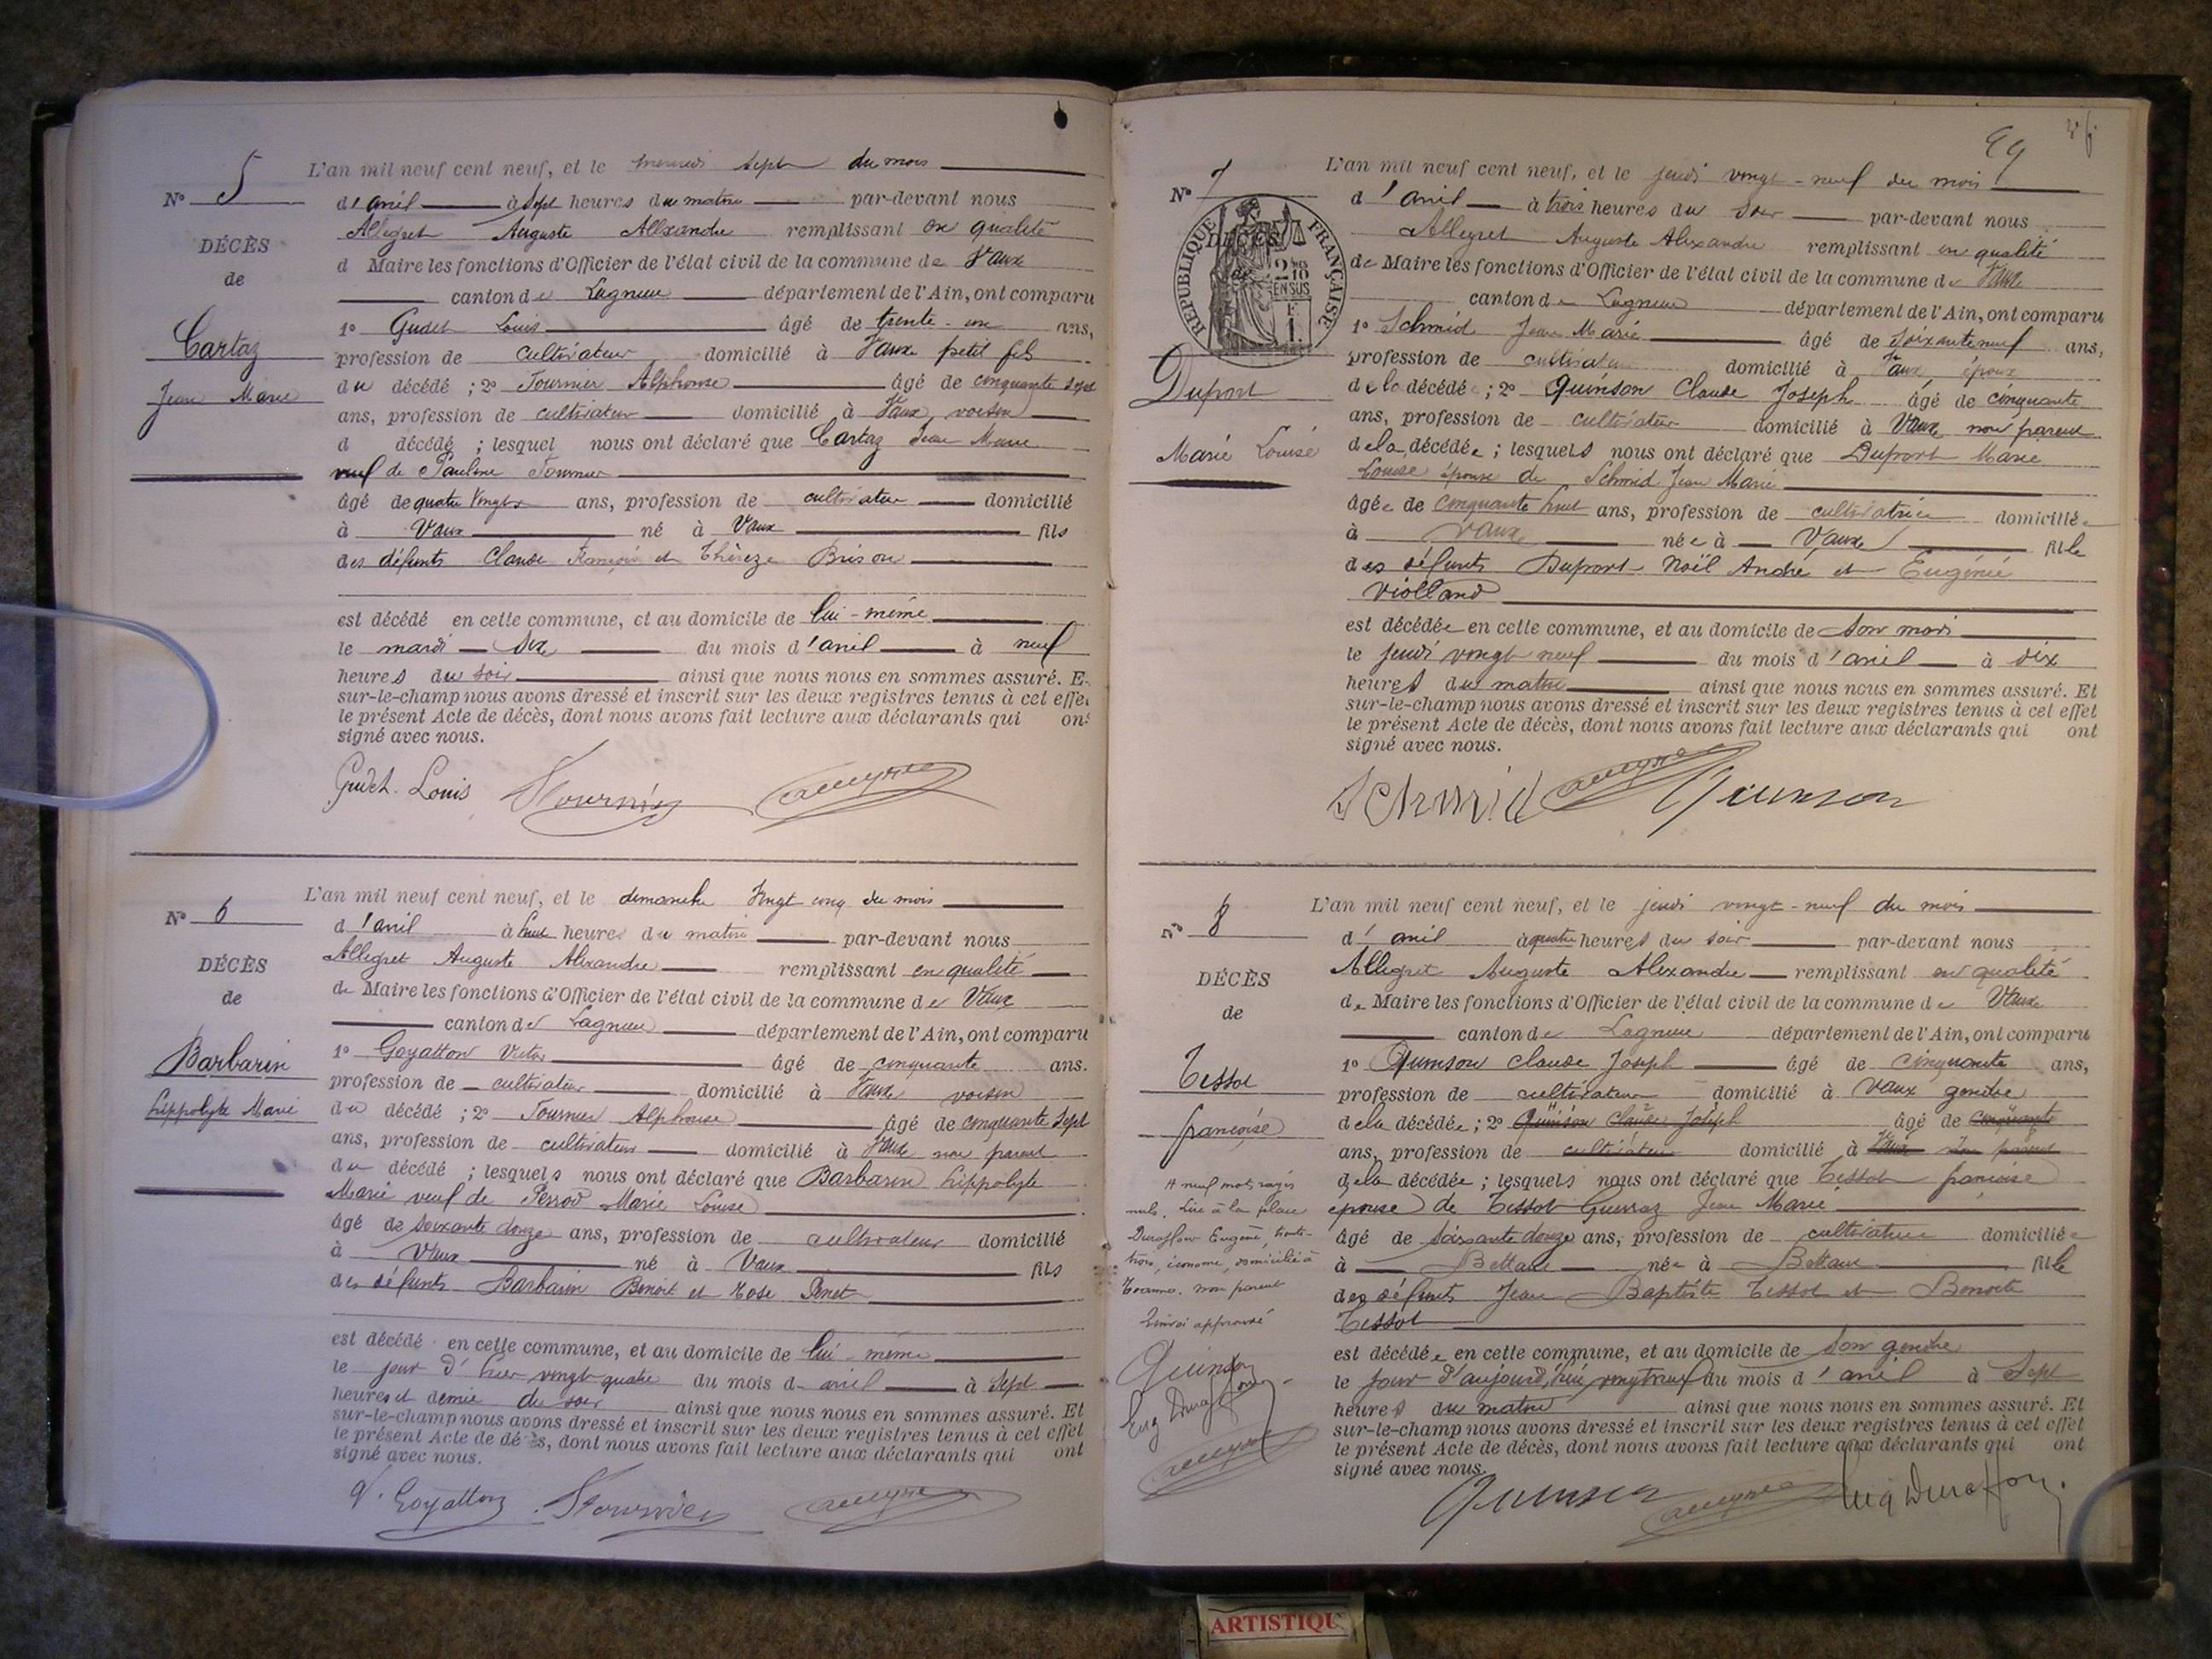 N° 5
DÉCÈS
de
Cartaz
Jean Marie
L'an mil neuf cent neuf, et le mercredi sept du mois
d'avril à sept heures du matin par-devant nous
Allegret Auguste Alexandre remplissant en qualité
d Maire les fonctions d'Officier de l'état civil de la commune de Vaux
canton de Lagnieu département de l'Ain, ont comparu
1° Gudet Louis âgé de trente-un ans,
profession de cultivateur domicilié à Vaux petit fils
du décédé ; 2° Tournier Alphonse âgé de cinquante sept
ans, profession de cultivateur domicilié à Vaux, voisin
d décédé ; lesquel nous ont déclaré que Cartaz Jean Marie
veuf de Pauline
âgé de quatre vingts ans, profession de cultivateur domicilié
à Vaux né à Vaux fils
des défunts Claude François et Thérèze Brison
est décédé en cette commune, et au domicile de lui-même
le mardi six du mois d'avril à neuf
heures du soir ainsi que nous nous en sommes assuré. E
sur-le-champ nous avons dressé et inscrit sur les deux registres tenus à cet effet
le présent Acte de décès, dont nous avons fait lecture aux déclarants qui ont
signé avec nous.
Gudet Louis Tournier
N° 6
DÉCÈS
de
Barbarin
hippolyte Marie
L'an mil neuf cent neuf, et le dimanche vingt cinq du mois
d'avril à heures du matin par-devant nous
Allegret Auguste Alexandre remplissant en qualité
de Maire les fonctions d'Officier de l'état civil de la commune de Vaux
canton de Lagnieu département de l'Ain, ont comparu
1° Goyatton Victor âgé de cinquante ans.
profession de cultivateur domicilié à Vaux voisin
du décédé ; 2° Tournier Alphonse âgé de cinquante sept
ans, profession de cultivateur domicilié à Vaux non parent
du décédé ; lesquels nous ont déclaré que Barbarin hippolyte
Marie veuf de Perrod Marie Louise
âgé de soixante douze ans, profession de cultivateur domicilié
à Vaux né à Vaux fils
des défunts Barbarin Benoit et Rose Penet
est décédé en cette commune, et au domicile de lui-même
le jour d'hier vingt quatre du mois d avril à sept
heures et demie du soir ainsi que nous nous en sommes assuré. Et
sur-le-champ nous avons dressé et inscrit sur les deux registres tenus à cet effet
le présent Acte de décès, dont nous avons fait lecture aux déclarants qui ont
signé avec nous.
V. Goyatton Tournier
99
N° 7
RÉPUBLIQUE FRANÇAISE
DÉCÈS
de
Duport
Marie Louise
L'an mil neuf cent neuf, et le jeudi vingt-neuf du mois
d'avril à trois heures du soir par-devant nous
Allegret Auguste Alexandre remplissant en qualité
de Maire les fonctions d'Officier de l'état civil de la commune de Vaux
canton de Lagnieu département de l'Ain, ont comparu
1° Schmid Jean Marie âgé de soixante neuf ans,
profession de cultivateur domicilié à Vaux époux
de la décédée ; 2° Quinson Claude Joseph âgé de cinquante
ans, profession de cultivateur domicilié à Vaux non parent
de la décédée ; lesquels nous ont déclaré que Duport Marie
Louise épouse de Schmid Jean Marie
âgée de cinquante huit ans, profession de cultivatrice domiciliée
à Vaux née à Vaux fille
des défunts Duport Noël André et Eugénie
Violland
est décédée en cette commune, et au domicile de son mari
le jeudi vingt neuf du mois d'avril à dix
heures du matin ainsi que nous nous en sommes assuré. Et
sur-le-champ nous avons dressé et inscrit sur les deux registres tenus à cet effet
le présent Acte de décès, dont nous avons fait lecture aux déclarants qui ont
signé avec nous.
Schmid Quinson
N° 8
DÉCÈS
de
Tissot
françoise
L'an mil neuf cent neuf, et le jeudi vingt-neuf du mois
d'avril à quatre heures du soir par-devant nous
Allegret Auguste Alexandre remplissant en qualité
de Maire les fonctions d'Officier de l'état civil de la commune de Vaux
canton de Lagnieu département de l'Ain, ont comparu
1° Quinson Claude Joseph âgé de cinquante ans,
profession de cultivateur domicilié à Vaux gendre
de la décédée ; 2° Quinson Claude Joseph âgé de cinquante
ans, profession de cultivateur domicilié à Vaux non parent
de la décédée ; lesquels nous ont déclaré que Tissot françoise
épouse de Tissot Guerraz Jean Marie
âgé de soixante douze ans, profession de cultivatrice domiciliée
à Bettant née à Bettant fille
des défunts Jean Baptiste Tissot et Benoite
Tissot
est décédée en cette commune, et au domicile de son gendre
le jour d'aujourd'hui vingt neuf du mois d'avril à sept
heures du matin ainsi que nous nous en sommes assuré. Et
sur-le-champ nous avons dressé et inscrit sur les deux registres tenus à cet effet
le présent Acte de décès, dont nous avons fait lecture aux déclarants qui ont
signé avec nous.
neuf mots rayés
nuls. Lire à la place
Duraffour Eugène, trente-
trois, économe, domicilié à
non parent
Renvoi approuvé
Quinson
Eug Duraffour
Quinson Eug Duraffour
ARTISTIQU